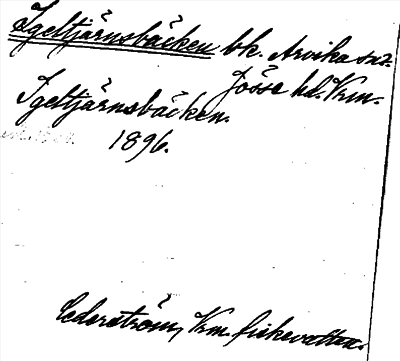 Igeltjärnsbäcken bk. Arvika snz.
Jösse hd. Vrm.
Igeltjärnsbäcken.
1896.
Cederström, Vrm. fiskevatten.